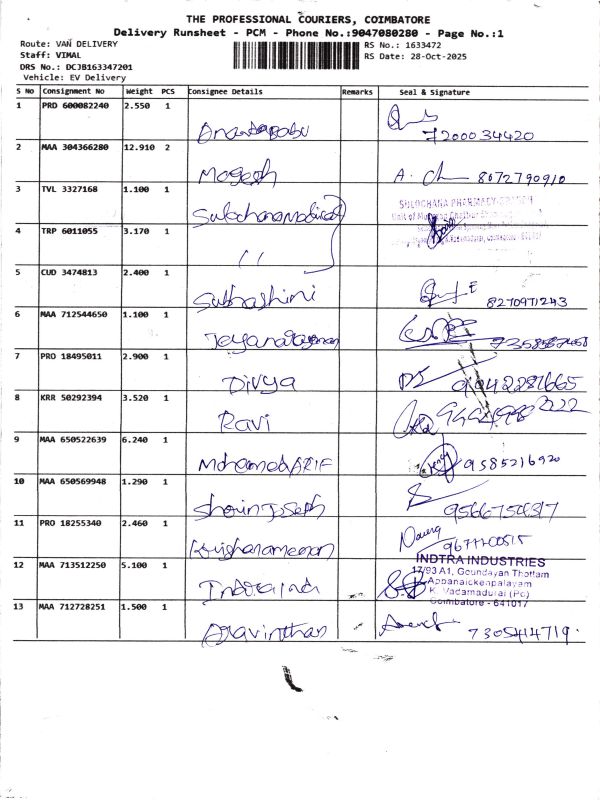 THE PROFESSIONAL COURIERS, COIMBATORE
Delivery Runsheet - PCM - Phone No.:9047080280 - Page No.:1
Route: VAN DELIVERY
RS No.: 1633472
Staff: VIMAL
RS Date: 28-Oct-2025
DRS No.: DCJB163347201
Vehicle: EV Delivery
S No Consignment No Weight PCS Consignee Details Remarks Seal & Signature
1 PRD 600082240 2.550 1 Anandababu 7200034420
2 MAA 304366280 12.910 2 Mogesh A. 8072790910
3 TVL 3327168 1.100 1 Sulochana Medical
SULOCHANA PHARMACY
4 TRP 6011055 3.170 1 ''
5 CUD 3474813 2.400 1 Subhashini 8270971243
6 MAA 712544650 1.100 1 Jeyanarayanan
7 PRO 18495011 2.900 1 Divya
8 KRR 50292394 3.520 1 Ravi
9 MAA 650522639 6.240 1 Mohamed ARIF 9585216920
10 MAA 650569948 1.290 1 Sherin Joseph
11 PRO 18255340 2.460 1 Krishnamenon
12 MAA 713512250 5.100 1
INDTRA INDUSTRIES
17/93 A1, Goundayan Thottam
Appanaickenpalayam
K. Vadamadurai (Po)
Coimbatore - 641017
13 MAA 712728251 1.500 1 Aravinthan 7305414719.